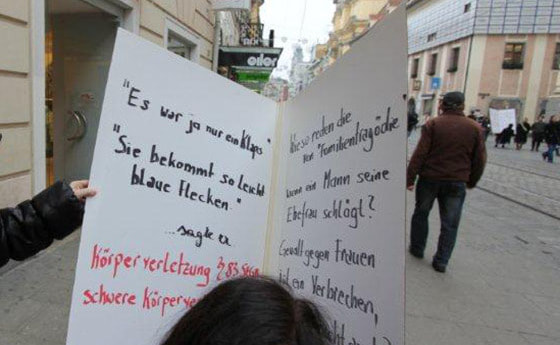 "Es war ja nur ein Klaps"
"Sie bekommt so leicht
blaue Flecken."
...sagte er
Körperverletzung § 83 StGB
schwere Körperver
Wieso reden die
von "Familientragödie
wenn ein Mann seine
Ehefrau schlägt?
Gewalt gegen Frauen
ist ein Verbrechen,